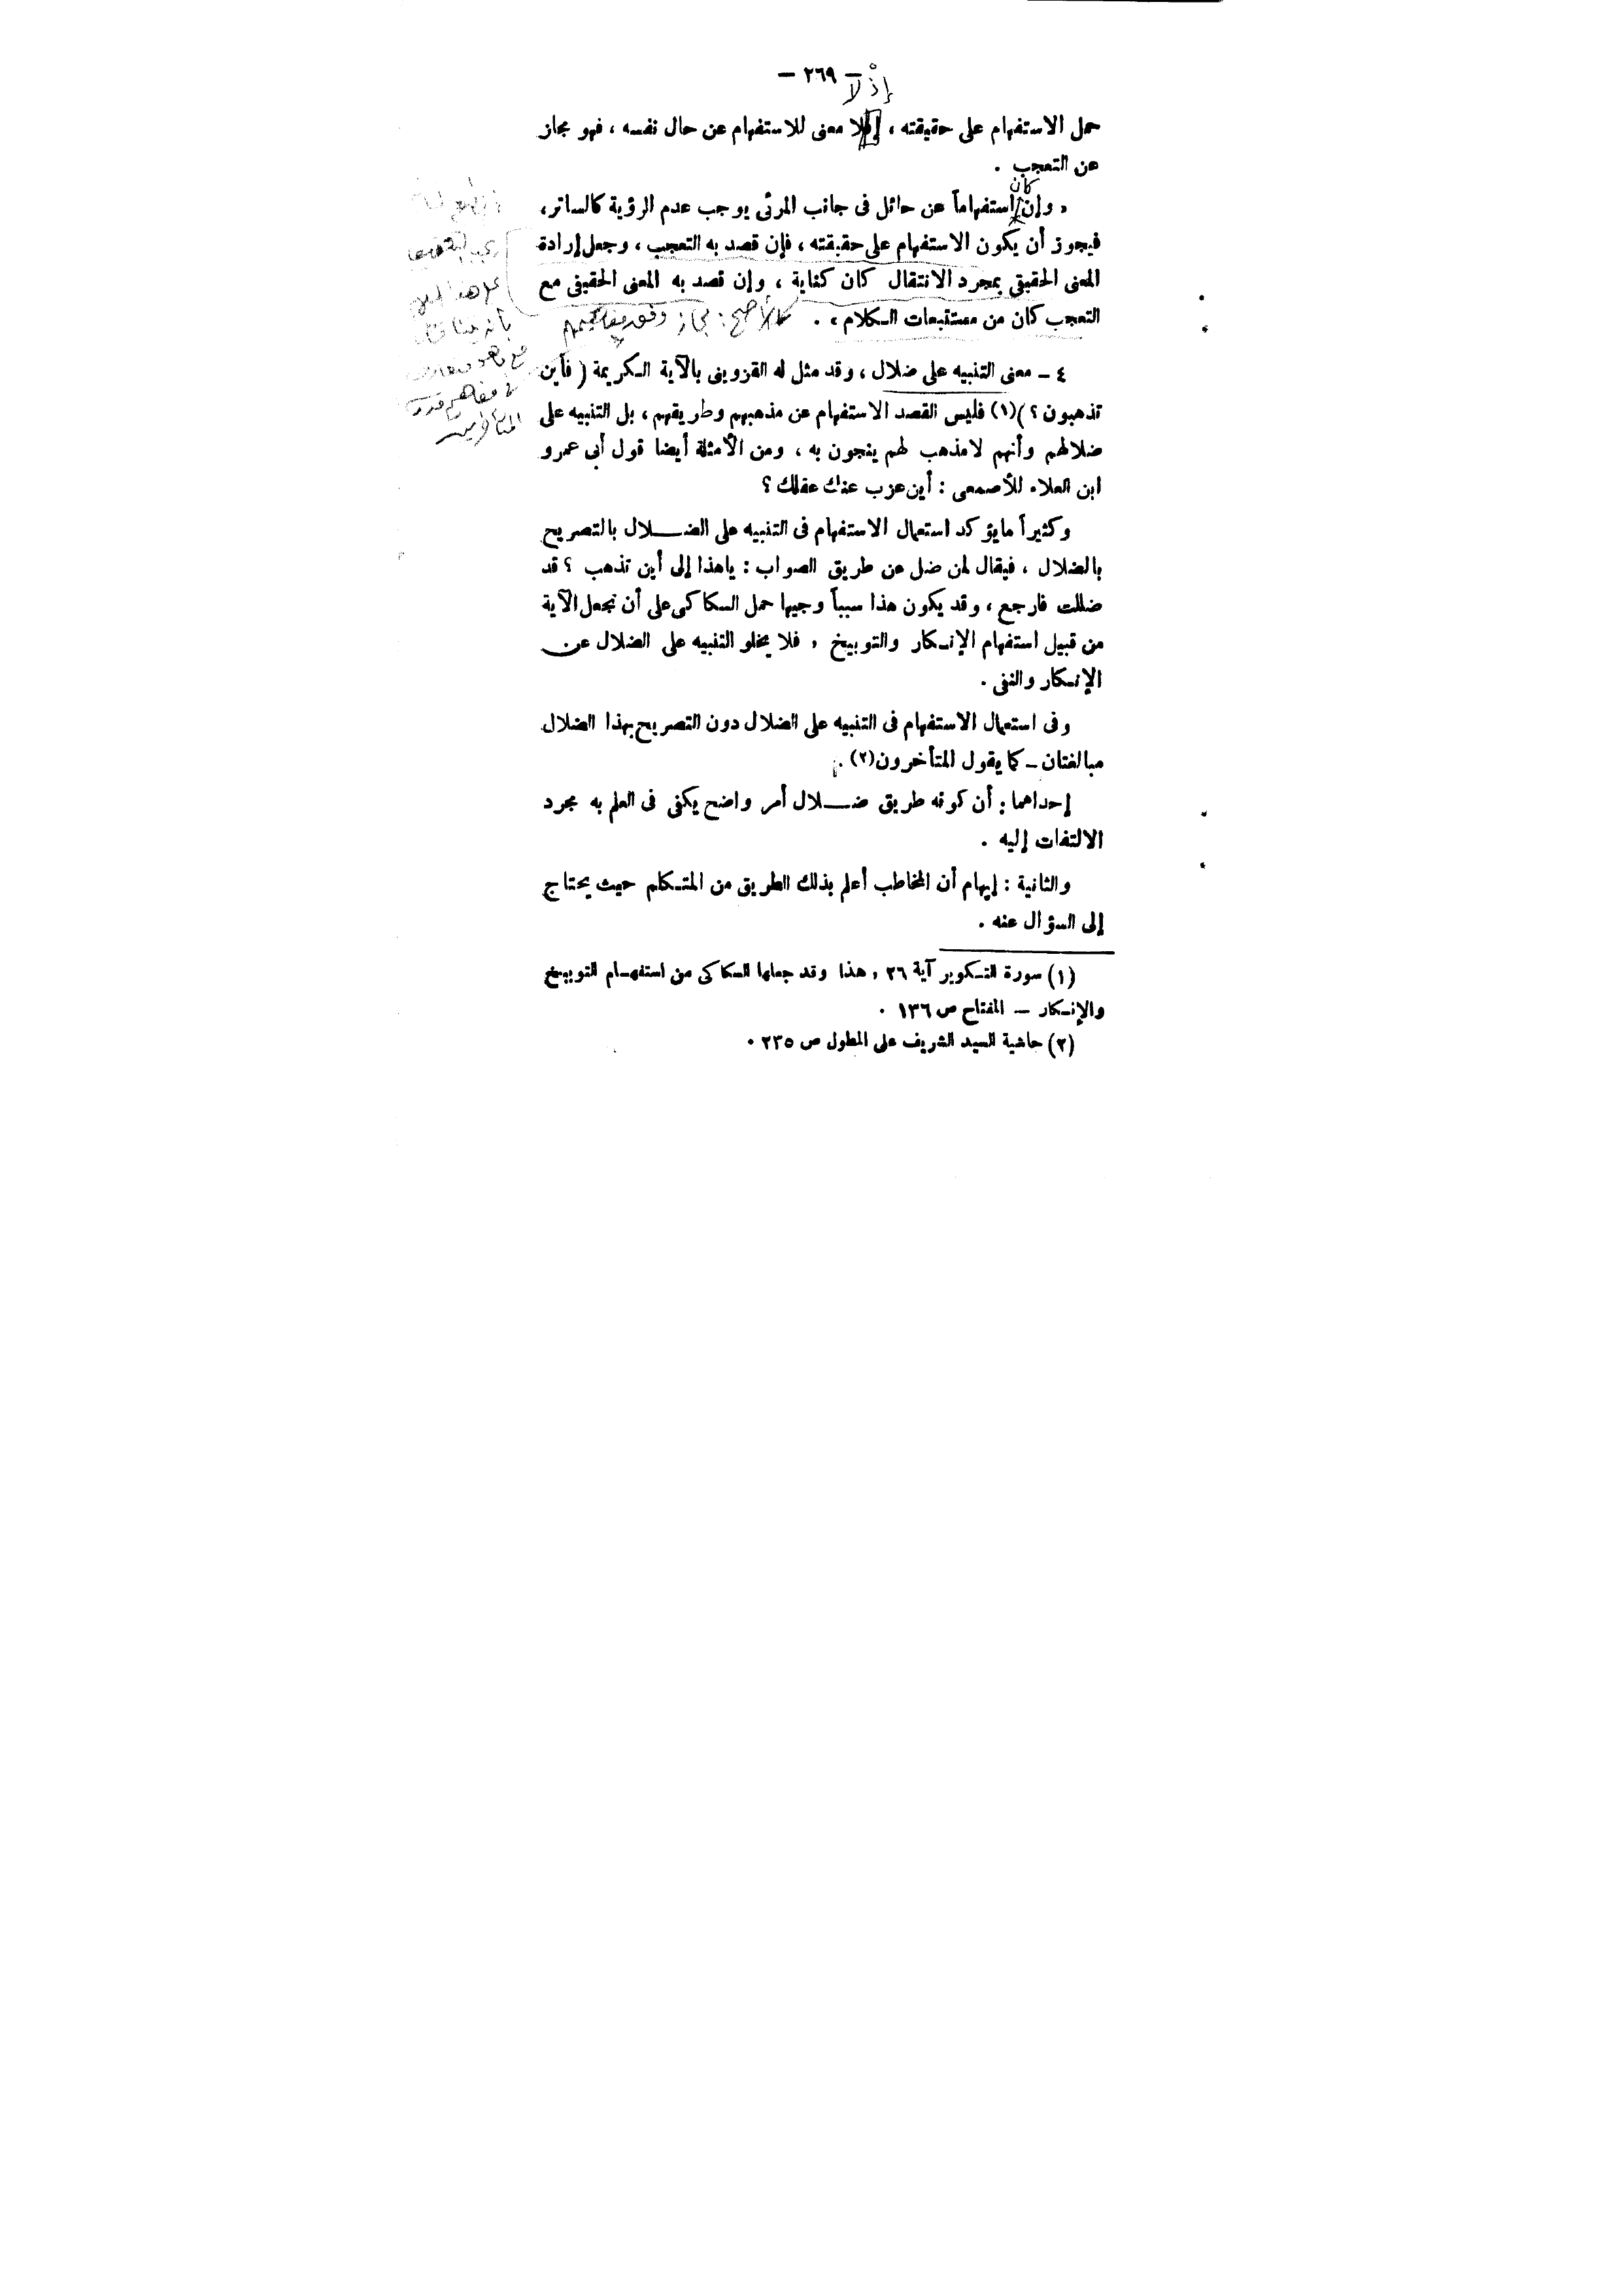 — ٢٦٩ —
إذْ لا
حمل الاستفهام على حقيقته ، إذ لا معنى للاستفهام عن حال نفسه ، فهو مجاز
عن التعجب .
كان
« وإن استفهاماً عن حائل فى جانب المرئى يوجب عدم الرؤية كالساتر ،
فيجوز أن يكون الاستفهام على حقيقته ، فإن قصد به التعجب ، وجعل إرادة
المعنى الحقيقى بمجرد الانتقال كان كناية ، وإن قصد به المعنى الحقيقى مع
التعجب كان من مستتبعات الكلام » .
٤ – معنى التنبيه على ضلال ، وقد مثل له القزوينى بالآية الكريمة ( فأين
تذهبون ؟ )(١) فليس القصد الاستفهام عن مذهبهم وطريقهم ، بل التنبيه على
ضلالهم وأنهم لا مذهب لهم ينجون به ، ومن الأمثلة أيضا قول أبى عمرو
ابن العلاء للأصمعى : أين عزب عنك عقلك ؟
وكثيراً مايؤكد استعمال الاستفهام فى التنبيه على الضلال بالتصريح
بالضلال ، فيقال لمن ضل عن طريق الصواب : ياهذا إلى أين تذهب ؟ قد
ضللت فارجع ، وقد يكون هذا سبباً وجيها حمل السكاكى على أن نجعل الآية
من قبيل استفهام الإنكار والتوبيخ ، فلا يخلو التنبيه على الضلال عن
الإنكار والنفى .
وفى استعمال الاستفهام فى التنبيه على الضلال دون التصريح بهذا الضلال
مبالغتان – كما يقول المتأخرون(٢) .
إحداهما : أن كونه طريق ضلال أمر واضح يكفى فى العلم به مجرد
الالتفات إليه .
والثانية : إيهام أن المخاطب أعلم بذلك الطريق من المتكلم حيث يحتاج
إلى السؤال عنه .
(١) سورة التكوير آية ٢٦ ، هذا وقد جعلها السكاكى من استفهام التوبيخ
والإنكار – المفتاح ص ١٣٦ .
(٢) حاشية السيد الشريف على المطول ص ٢٣٥ .